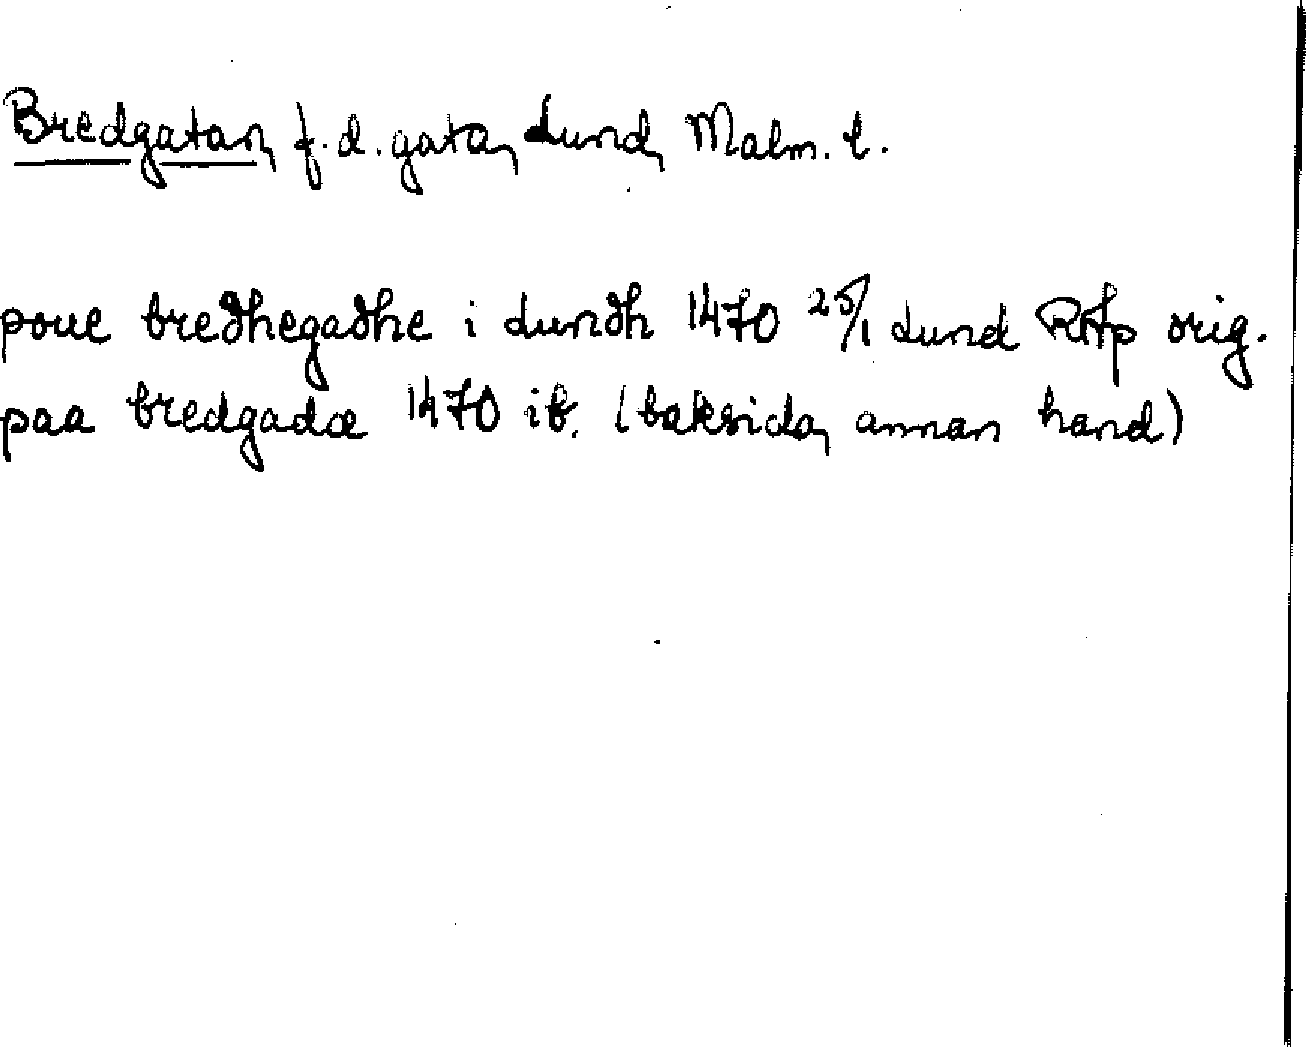 Bredgatan, f.d. gata, Lund, Malm. l.
poue bredhegadhe i Lundh 1470 25/1 Lund RAp orig.
paa bredgadæ 1470 ib. (baksida, annan hand)